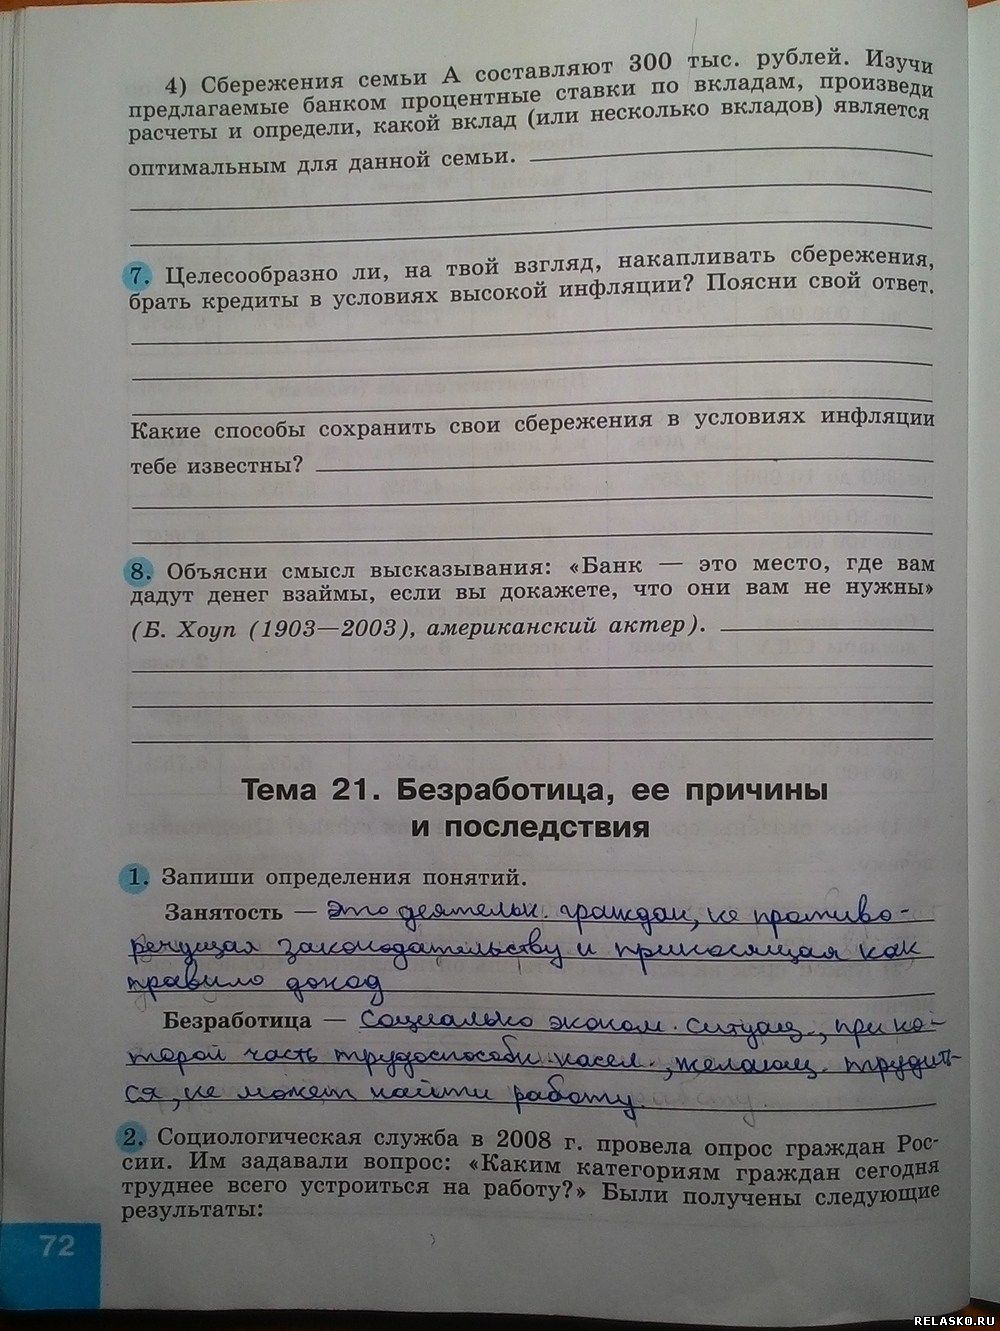 4) Сбережения семьи А составляют 300 тыс. рублей. Изучи
предлагаемые банком процентные ставки по вкладам, произведи
расчеты и определи, какой вклад (или несколько вкладов) является
оптимальным для данной семьи.
7. Целесообразно ли, на твой взгляд, накапливать сбережения,
брать кредиты в условиях высокой инфляции? Поясни свой ответ.
Какие способы сохранить свои сбережения в условиях инфляции
тебе известны?
8. Объясни смысл высказывания: «Банк — это место, где вам
дадут денег взаймы, если вы докажете, что они вам не нужны»
(Б. Хоуп (1903—2003), американский актер).
Тема 21. Безработица, ее причины
и последствия
1. Запиши определения понятий.
Занятость — это деятельн. граждан, не противо-
речущая законодательству и приносящая как
правило доход
Безработица — социально эконом. ситуац., при ко-
торой часть трудоспособн. насел., желающ. трудить-
ся, не может найти работу.
2. Социологическая служба в 2008 г. провела опрос граждан Рос-
сии. Им задавали вопрос: «Каким категориям граждан сегодня
труднее всего устроиться на работу?» Были получены следующие
результаты:
72
RELASKO.RU